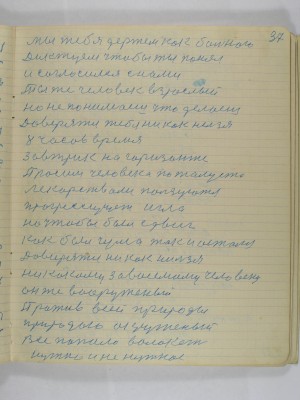 37
мы тебя держем как больного
Диктуем чтобы ты понял
и согласился с нами
Ты же человек взрослый
но не понимаеш что делаеш
Доверяти тебе никак нельзя
8 часов время
Завтрик на горизонте
Просим человека пожалуста
Лекарствами ползуются
прогрессирует игла
но чтобы был сдвиг
Как был чума так и остался
Доверяти никак нельзя
никакому завоемому человеку
он же вооруженый
Против всей природы
природаго
Все попало волокет
нужное и не нужное